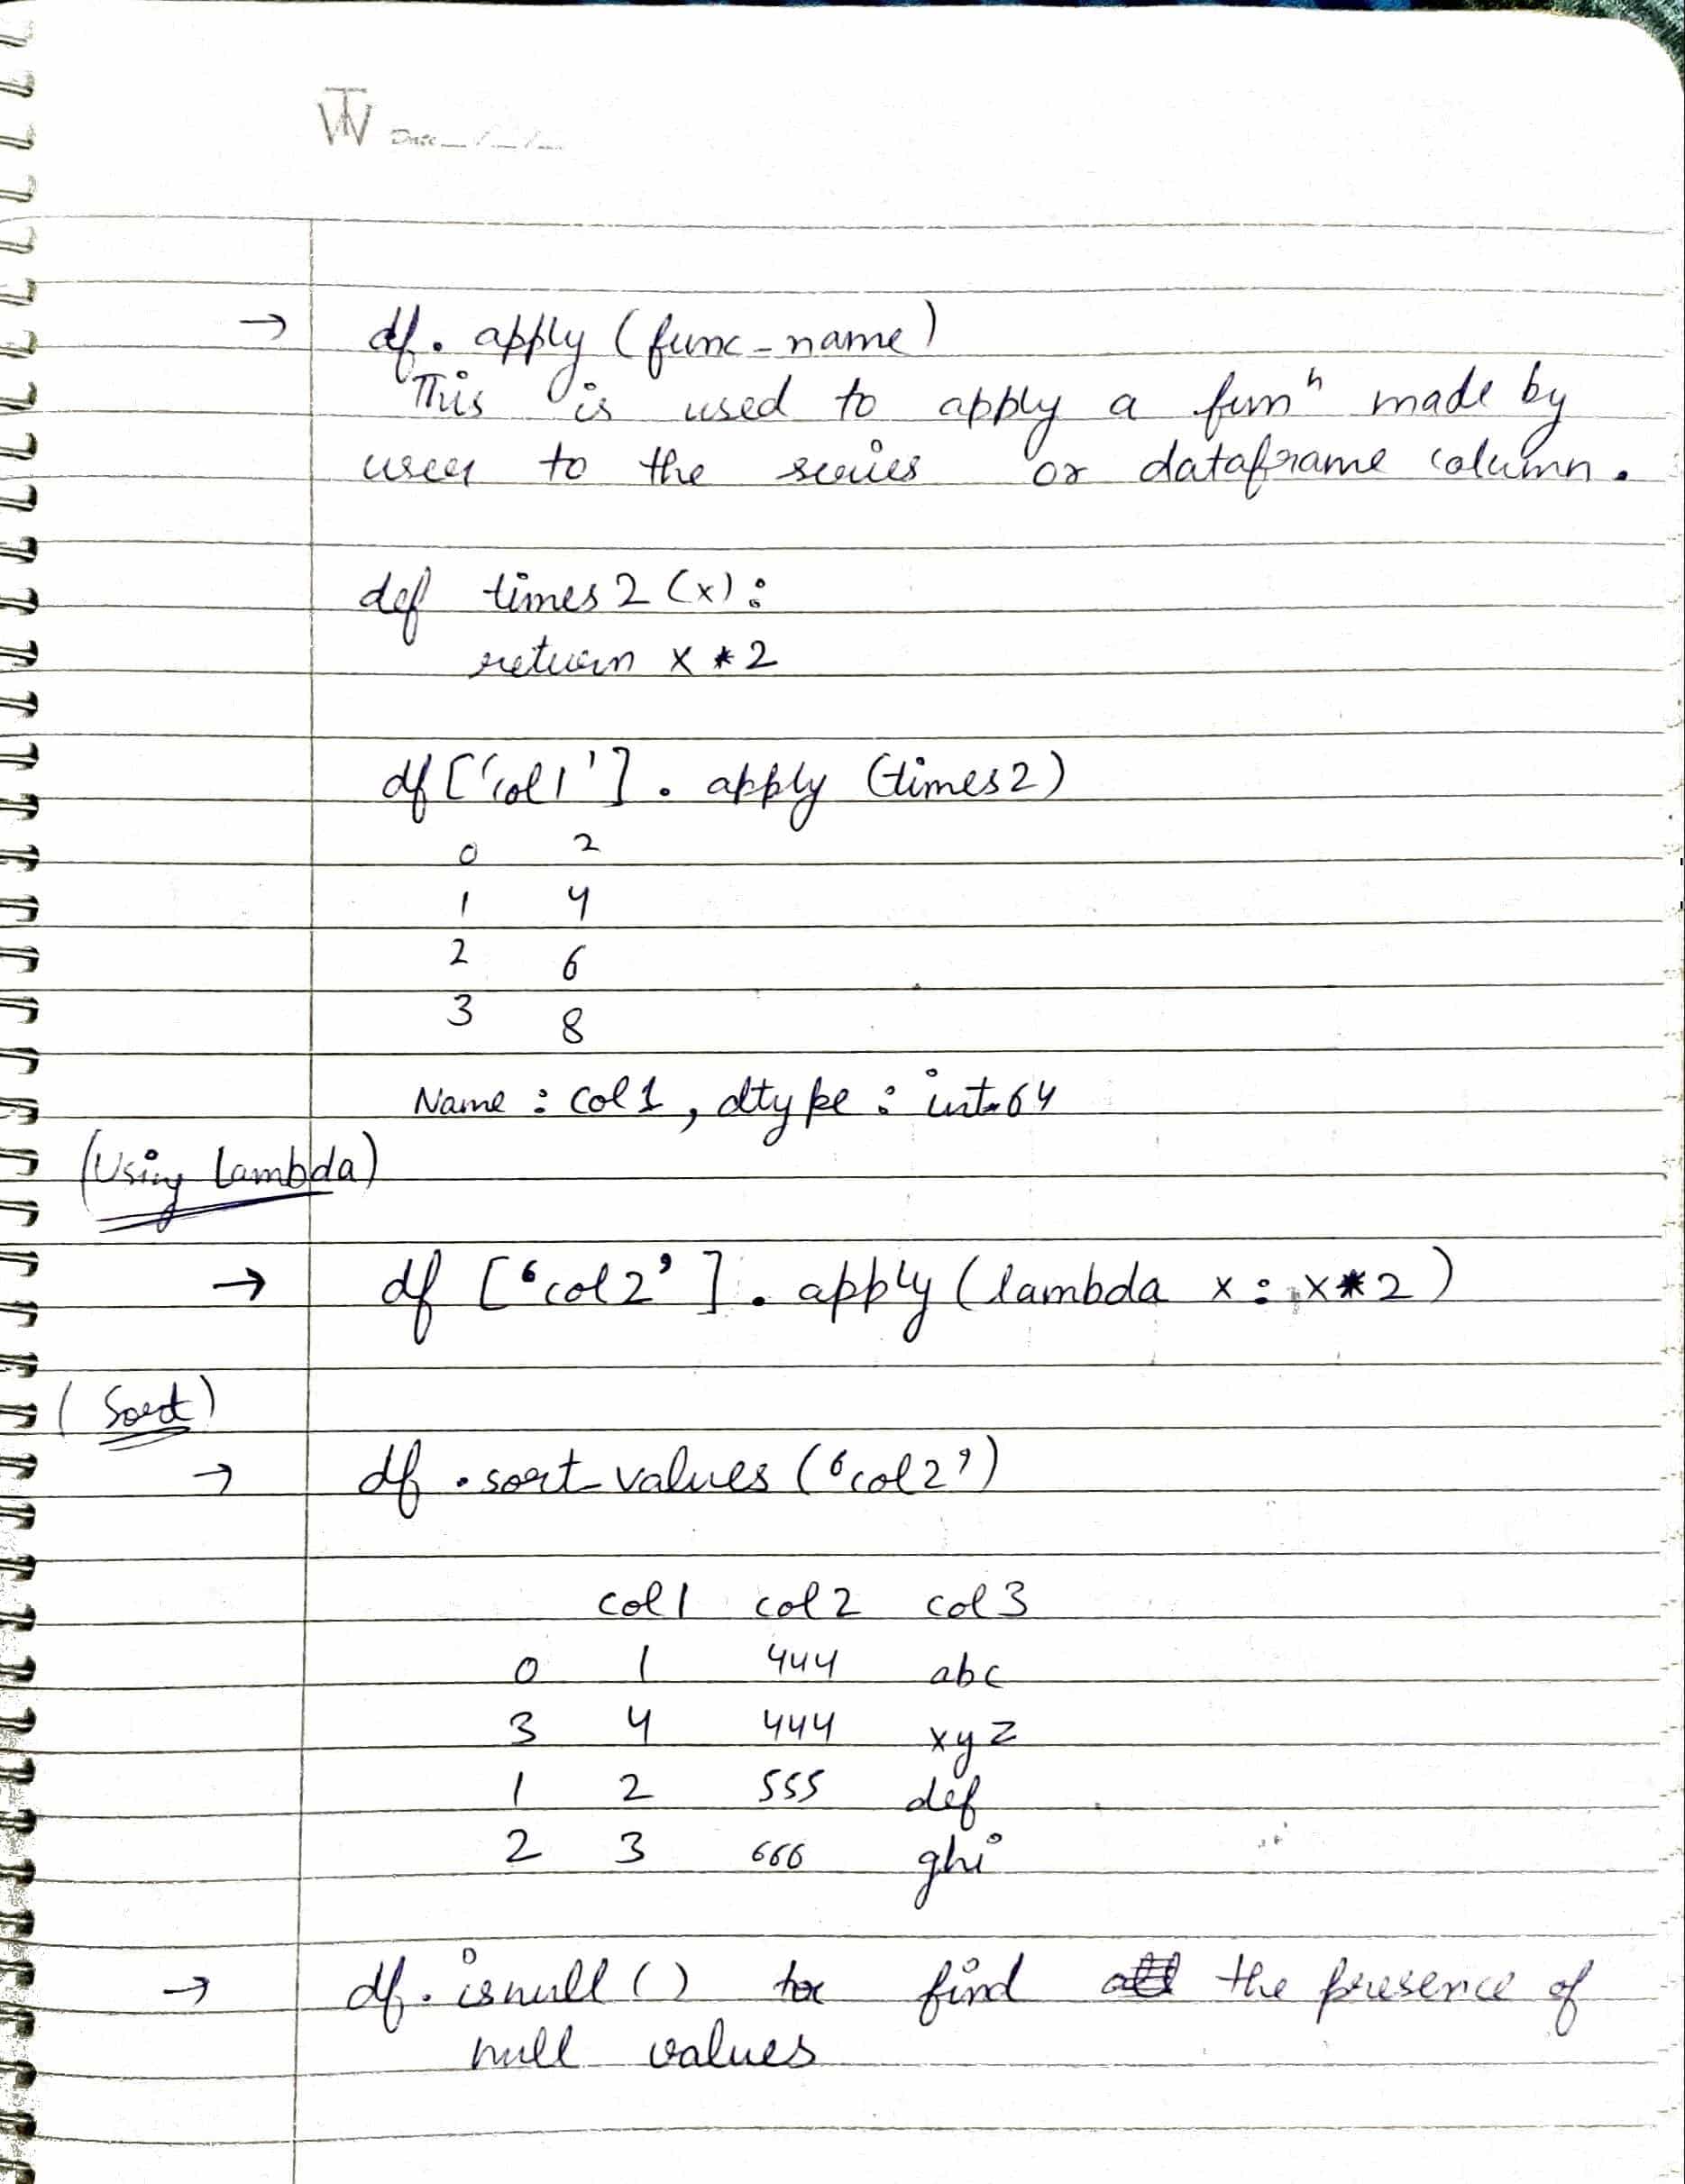 TW Date__/__/__
→ df. apply (func_name)
This is used to apply a funⁿ made by
user to the series or dataframe column.
def times2 (x):
return x *2
df ['col1']. apply (times2)
0 2
1 4
2 6
3 8
Name : col1, dtype : int64
(Using Lambda)
→ df ['col2']. apply (lambda x: x*2)
(Sort)
→ df .sort_values ('col2')
col1 col2 col3
0 1 444 abc
3 4 444 xyz
1 2 555 def
2 3 666 ghi
→ df. isnull () to find the presence of
null values